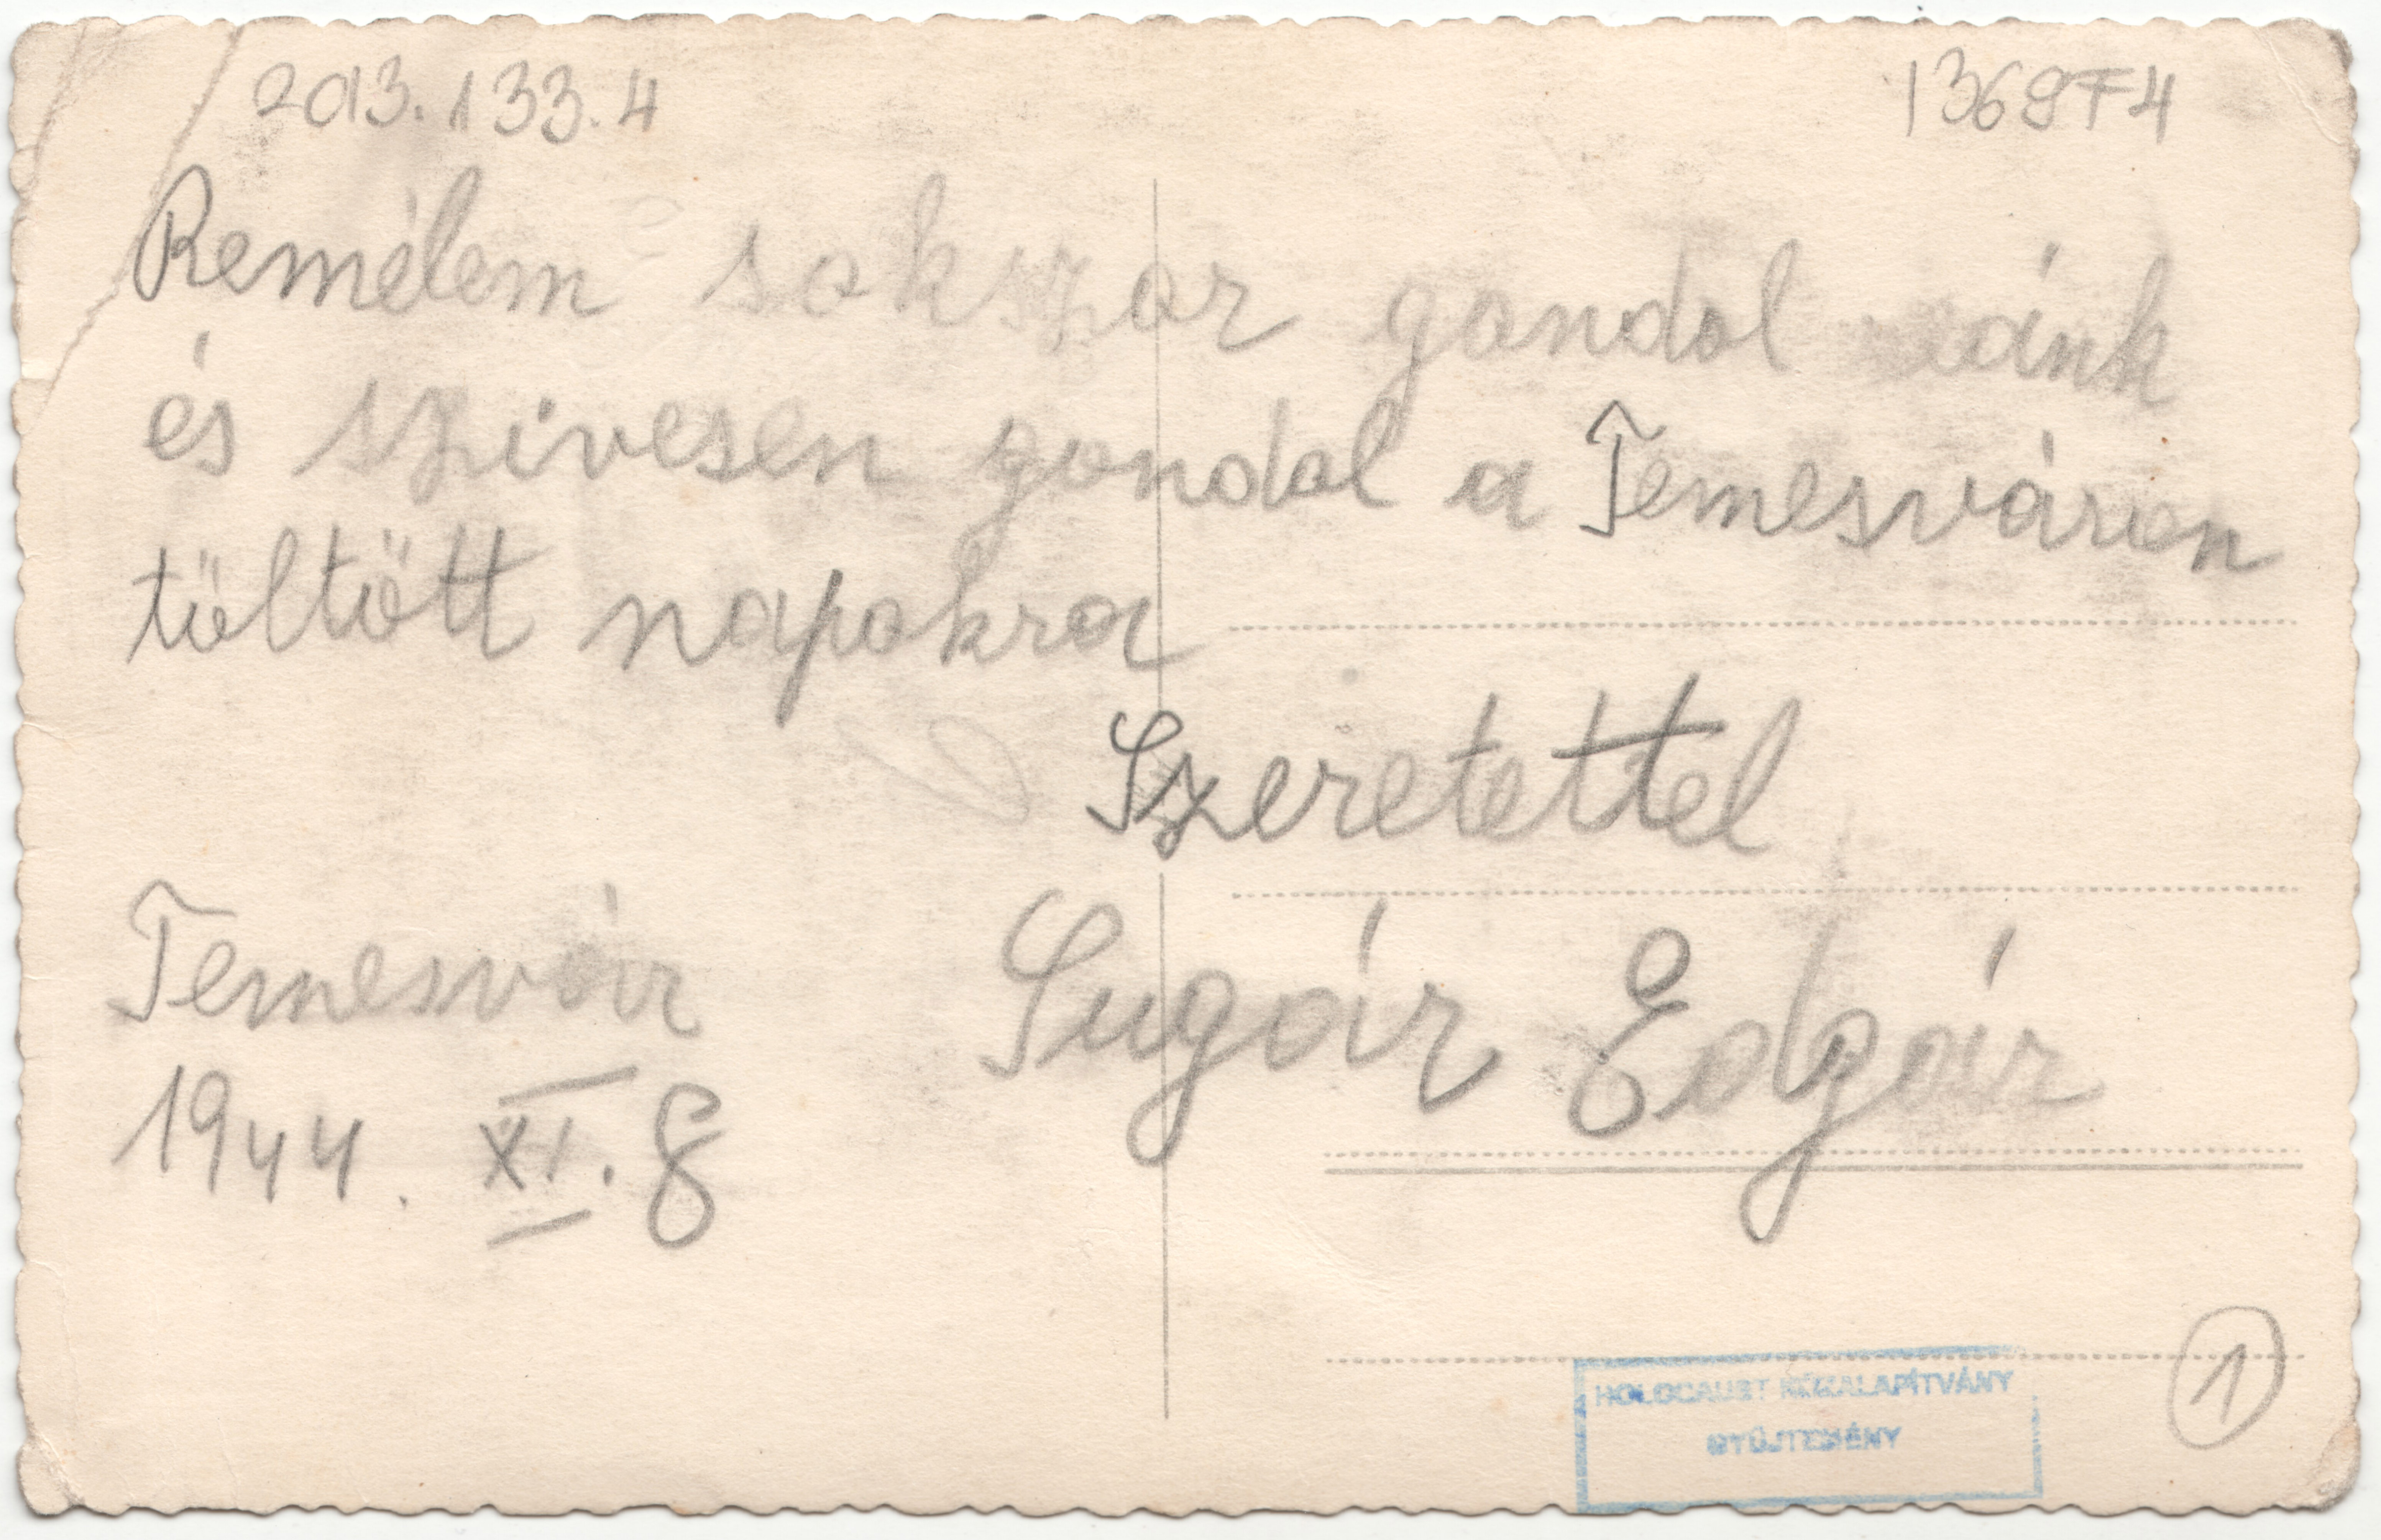 2013.133.4
1369F4
Remélem sokszor gondol ránk
és szivesen gondol a Temesváron
töltött napokra
Szeretettel
Sugár Edgár
Temesvár
1944. XI. 8
HOLOCAUST KÖZALAPÍTVÁNY
GYŰJTEMÉNY
1